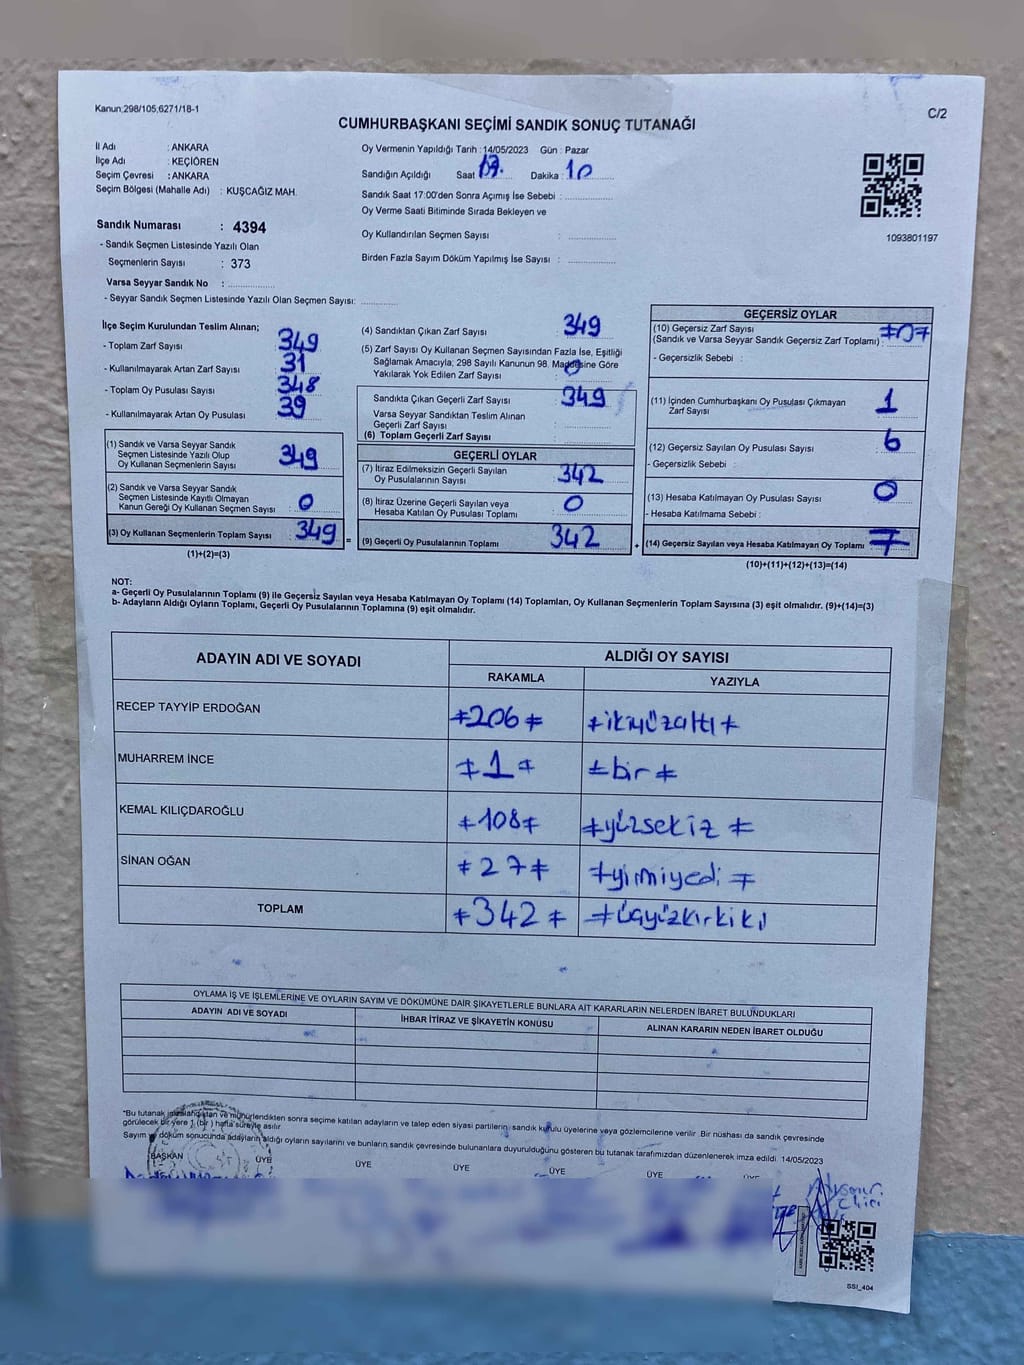 Kanun;298/105;6271/18-1
C/2
CUMHURBAŞKANI SEÇİMİ SANDIK SONUÇ TUTANAĞI
İl Adı : ANKARA
İlçe Adı : KEÇİÖREN
Seçim Çevresi : ANKARA
Seçim Bölgesi (Mahalle Adı) : KUŞCAĞIZ MAH.
Oy Vermenin Yapıldığı Tarih : 14/05/2023 Gün : Pazar
Sandığın Açıldığı Saat 17. Dakika : 10
Sandık Saat 17:00'den Sonra Açımış İse Sebebi :
Oy Verme Saati Bitiminde Sırada Bekleyen ve
Oy Kullandırılan Seçmen Sayısı :
Birden Fazla Sayım Döküm Yapılmış İse Sayısı :
1093801197
Sandık Numarası : 4394
- Sandık Seçmen Listesinde Yazılı Olan
Seçmenlerin Sayısı : 373
Varsa Seyyar Sandık No :
- Seyyar Sandık Seçmen Listesinde Yazılı Olan Seçmen Sayısı:
İlçe Seçim Kurulundan Teslim Alınan;
- Toplam Zarf Sayısı 349
- Kullanılmayarak Artan Zarf Sayısı 31
- Toplam Oy Pusulası Sayısı 348
- Kullanılmayarak Artan Oy Pusulası 39
(1) Sandık ve Varsa Seyyar Sandık
Seçmen Listesinde Yazılı Olup
Oy Kullanan Seçmenlerin Sayısı 349
(2) Sandık ve Varsa Seyyar Sandık
Seçmen Listesinde Kayıtlı Olmayan
Kanun Gereği Oy Kullanan Seçmen Sayısı 0
(3) Oy Kullanan Seçmenlerin Toplam Sayısı 349 =
(1)+(2)=(3)
(4) Sandıktan Çıkan Zarf Sayısı 349
(5) Zarf Sayısı Oy Kullanan Seçmen Sayısından Fazla İse, Eşitliği
Sağlamak Amacıyla, 298 Sayılı Kanunun 98. Maddesine Göre
Yakılarak Yok Edilen Zarf Sayısı 0
Sandıkta Çıkan Geçerli Zarf Sayısı 349
Varsa Seyyar Sandıktan Teslim Alınan
Geçerli Zarf Sayısı :
(6) Toplam Geçerli Zarf Sayısı
GEÇERLİ OYLAR
(7) İtiraz Edilmeksizin Geçerli Sayılan
Oy Pusulalarının Sayısı 342
(8) İtiraz Üzerine Geçerli Sayılan veya
Hesaba Katılan Oy Pusulası Toplamı 0
(9) Geçerli Oy Pusulalarının Toplamı 342 +
GEÇERSİZ OYLAR
(10) Geçersiz Zarf Sayısı
(Sandık ve Varsa Seyyar Sandık Geçersiz Zarf Toplamı)
- Geçersizlik Sebebi :
(11) İçinden Cumhurbaşkanı Oy Pusulası Çıkmayan
Zarf Sayısı 1
(12) Geçersiz Sayılan Oy Pusulası Sayısı 6
- Geçersizlik Sebebi :
(13) Hesaba Katılmayan Oy Pusulası Sayısı 0
- Hesaba Katılmama Sebebi :
(14) Geçersiz Sayılan veya Hesaba Katılmayan Oy Toplamı 7
(10)+(11)+(12)+(13)=(14)
NOT:
a- Geçerli Oy Pusulalarının Toplamı (9) ile Geçersiz Sayılan veya Hesaba Katılmayan Oy Toplamı (14) Toplamları, Oy Kullanan Seçmenlerin Toplam Sayısına (3) eşit olmalıdır. (9)+(14)=(3)
b- Adayların Aldığı Oyların Toplamı, Geçerli Oy Pusulalarının Toplamına (9) eşit olmalıdır.
ADAYIN ADI VE SOYADI
ALDIĞI OY SAYISI
RAKAMLA YAZIYLA
RECEP TAYYİP ERDOĞAN ≠206≠ ≠ikiyüzaltı≠
MUHARREM İNCE ≠1≠ ≠bir≠
KEMAL KILIÇDAROĞLU ≠108≠ ≠yüzsekiz≠
SİNAN OĞAN ≠27≠ ≠yirmiyedi≠
TOPLAM ≠342≠ ≠üçyüzkırkiki
OYLAMA İŞ VE İŞLEMLERİNE VE OYLARIN SAYIM VE DÖKÜMÜNE DAİR ŞİKAYETLERLE BUNLARA AİT KARARLARIN NELERDEN İBARET BULUNDUKLARI
ADAYIN ADI VE SOYADI İHBAR İTİRAZ VE ŞİKAYETİN KONUSU ALINAN KARARIN NEDEN İBARET OLDUĞU
*Bu tutanak imzalandıktan ve mühürlendikten sonra seçime katılan adayların ve talep eden siyasi partilerin sandık kurulu üyelerine veya gözlemcilerine verilir. Bir nüshası da sandık çevresinde
görülecek bir yere 1 (bir) hafta süreyle asılır
Sayım ve döküm sonucunda adayların aldığı oyların sayılarını ve bunların sandık çevresinde bulunanlara duyurulduğunu gösteren bu tutanak tarafımızdan düzenlenerek imza edildi. 14/05/2023
BAŞKAN ÜYE ÜYE ÜYE ÜYE ÜYE ÜYE
SSİ_404